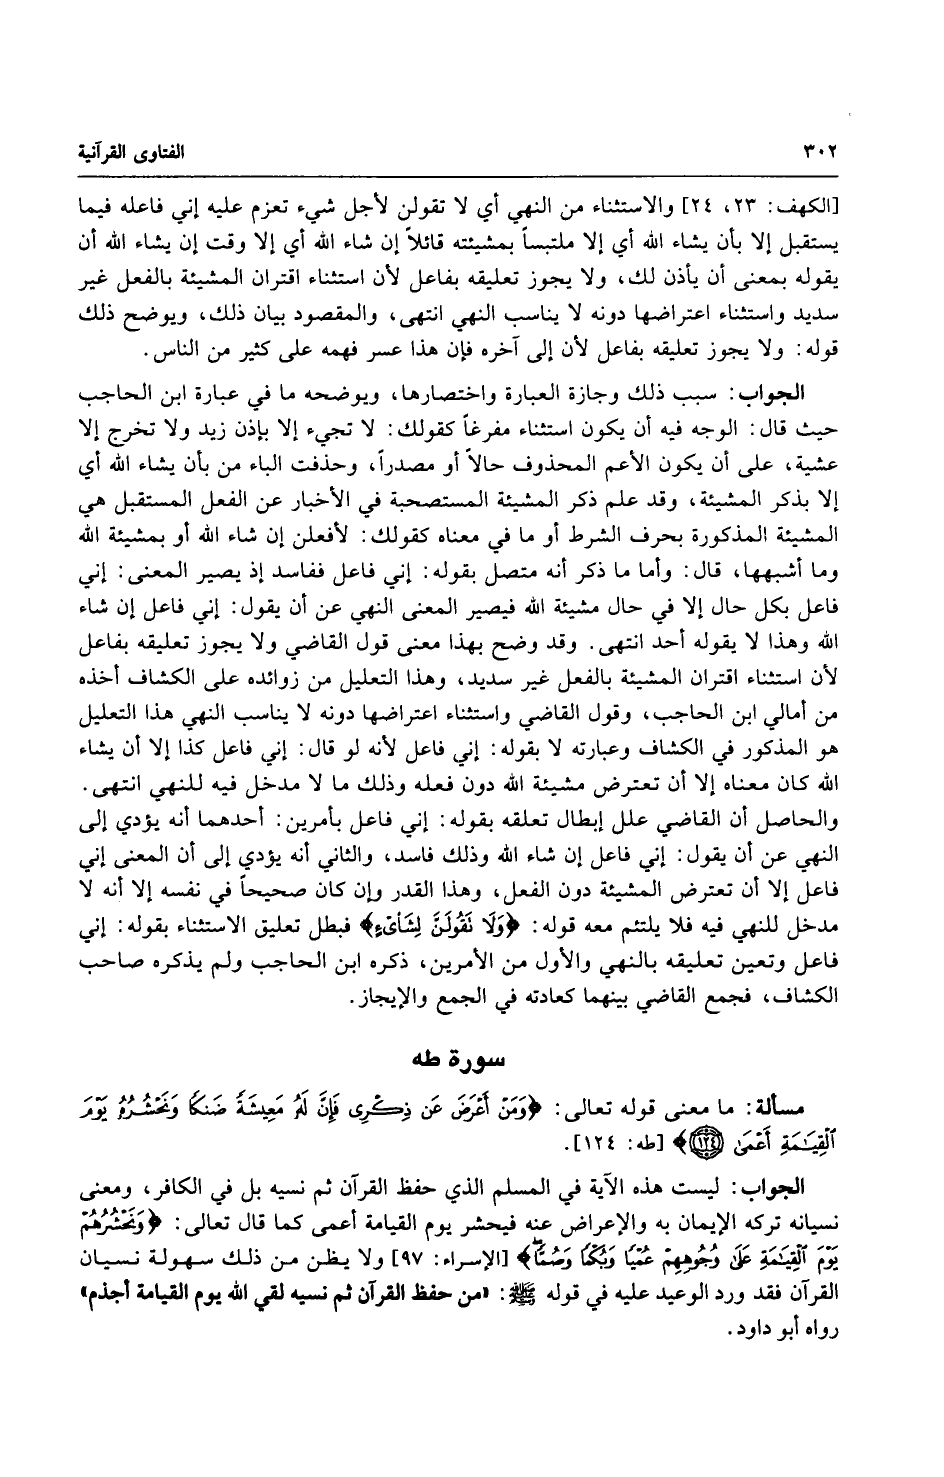 ٣٠٢ الفتاوى القرآنية
[الكهف: ٢٣، ٢٤] والاستثناء من النهي أي لا تقولن لأجل شيء تعزم عليه إني فاعله فيما
يستقبل إلا بأن يشاء الله أي إلا ملتبساً بمشيئته قائلاً إن شاء الله أي إلا وقت إن يشاء الله أن
يقوله بمعنى أن يأذن لك، ولا يجوز تعليقه بفاعل لأن استثناء اقتران المشيئة بالفعل غير
سديد واستثناء اعتراضها دونه لا يناسب النهي انتهى، والمقصود بيان ذلك، ويوضح ذلك
قوله: ولا يجوز تعليقه بفاعل لأن إلى آخره فإن هذا عسر فهمه على كثير من الناس.
الجواب: سبب ذلك وجازة العبارة واختصارها، ويوضحه ما في عبارة ابن الحاجب
حيث قال: الوجه فيه أن يكون استثناء مفرغاً كقولك: لا تجيء إلا بإذن زيد ولا تخرج إلا
عشية، على أن يكون الأعم المحذوف حالاً أو مصدراً، وحذفت الباء من بأن يشاء الله أي
إلا بذكر المشيئة، وقد علم ذكر المشيئة المستصحبة في الأخبار عن الفعل المستقبل هي
المشيئة المذكورة بحرف الشرط أو ما في معناه كقولك: لأفعلن إن شاء الله أو بمشيئة الله
وما أشبهها، قال: وأما ما ذكر أنه متصل بقوله: إني فاعل ففاسد إذ يصير المعنى: إني
فاعل بكل حال إلا في حال مشيئة الله فيصير المعنى النهي عن أن يقول: إني فاعل إن شاء
الله وهذا لا يقوله أحد انتهى. وقد وضح بهذا معنى قول القاضي ولا يجوز تعليقه بفاعل
لأن استثناء اقتران المشيئة بالفعل غير سديد، وهذا التعليل من زوائده على الكشاف أخذه
من أمالي ابن الحاجب، وقول القاضي واستثناء اعتراضها دونه لا يناسب النهي هذا التعليل
هو المذكور في الكشاف وعبارته لا بقوله: إني فاعل لأنه لو قال: إني فاعل كذا إلا أن يشاء
الله كان معناه إلا أن تعترض مشيئة الله دون فعله وذلك ما لا مدخل فيه للنهي انتهى.
والحاصل أن القاضي علل إبطال تعلقه بقوله: إني فاعل بأمرين: أحدهما أنه يؤدي إلى
النهي عن أن يقول: إني فاعل إن شاء الله وذلك فاسد، والثاني أنه يؤدي إلى أن المعنى إني
فاعل إلا أن تعترض المشيئة دون الفعل، وهذا القدر وإن كان صحيحاً في نفسه إلا أنه لا
مدخل للنهي فيه فلا يلتئم معه قوله: ﴿وَلَا نَقُولَنَّ لِشَاْىْءٍ﴾ فبطل تعليق الاستثناء بقوله: إني
فاعل وتعين تعليقه بالنهي والأول من الأمرين، ذكره ابن الحاجب ولم يذكره صاحب
الكشاف، فجمع القاضي بينهما كعادته في الجمع والإيجاز.
سورة طه
مسألة: ما معنى قوله تعالى: ﴿وَمَنْ أَعْرَضَ عَن ذِكْرِى فَإِنَّ لَهُۥ مَعِيشَةً ضَنكًا وَنَحْشُرُهُۥ يَوْمَ
ٱلْقِيَـٰمَةِ أَعْمَىٰ ١٢٤﴾ [طه: ١٢٤].
الجواب: ليست هذه الآية في المسلم الذي حفظ القرآن ثم نسيه بل في الكافر، ومعنى
نسيانه تركه الإيمان به والإعراض عنه فيحشر يوم القيامة أعمى كما قال تعالى: ﴿وَنَحْشُرُهُمْ
يَوْمَ ٱلْقِيَـٰمَةِ عَلَىٰ وُجُوهِهِمْ عُمْيًا وَبُكْمًا وَصُمًّا﴾ [الإسراء: ٩٧] ولا يظن من ذلك سهولة نسيان
القرآن فقد ورد الوعيد عليه في قوله ﷺ: «من حفظ القرآن ثم نسيه لقي الله يوم القيامة أجذم»
رواه أبو داود.